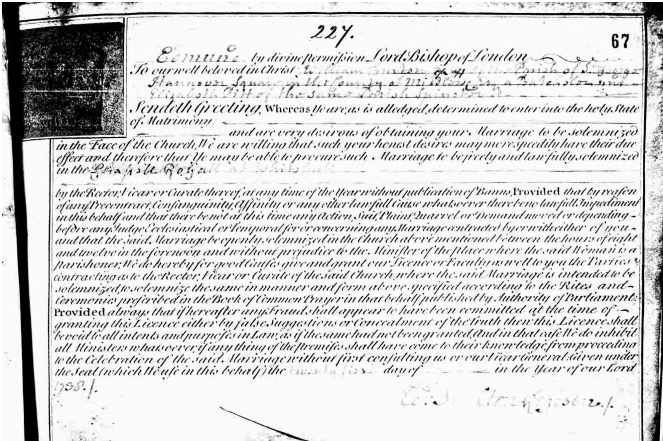 227.
67
Edmund by divine Permission Lord Bishop of London
To our well beloved in Christ William of the Parish of St George
Hannover Square in the County of Middlesex a Batchelor and
Elizabeth of the same Parish
Sendeth Greeting, Whereas Ye are, as is alledged, determined to enter into the holy State
of Matrimony
and are very desirous of obtaining your Marriage to be solemnized
in the Face of the Church, We are willing that such your honest desires may more speedily have their due
effect and therefore that Ye may be able to procure such Marriage to be freely and lawfully solemnized
in the Chapel Royal at Whitehall
by the Rector, Vicar or Curate thereof, at any time of the Year without publication of Banns, Provided that by reason
of any Precontract, Consanguinity, Affinity or any other lawfull Cause whatsoever there be no lawfull Impediment
in this behalf and that there be not at this time any Action, Suit, Plaint, Quarrel or Demand moved or depending
before any Judge Ecclesiastical or Temporal for or concerning any Marriage contracted by or with either of you
and that the said Marriage be openly solemnized in the Church above mentioned between the hours of eight
and twelve in the forenoon and without prejudice to the Minister of the place where the said Woman is a
Parishoner. We do hereby for good Causes give and grant our Licence or Faculty as well to you the Parties
contracting as to the Rector, Vicar or Curate of the said Church, where the said Marriage is intended to be
solemnized, to solemnize the same in manner and form above specified according to the Rites and
Ceremonies prescribed in the Book of Common Prayer in that behalf published by Authority of Parliament.
Provided always that if hereafter any Fraud shall appear to have been committed at the time of
granting this Licence either by false Suggestions or Concealment of the Truth then this Licence shall
be void to all intents and purposes in Law, as if the same had not been granted, And in that case We do inhibit
all Ministers whatsoever, if any thing of the Premises shall have come to their knowledge from proceeding
to the Celebration of the said Marriage without first consulting us or our Vicar General. Given under
the Seal (which We use in this behalf) the twenty first day of in the Year of our Lord
1738.